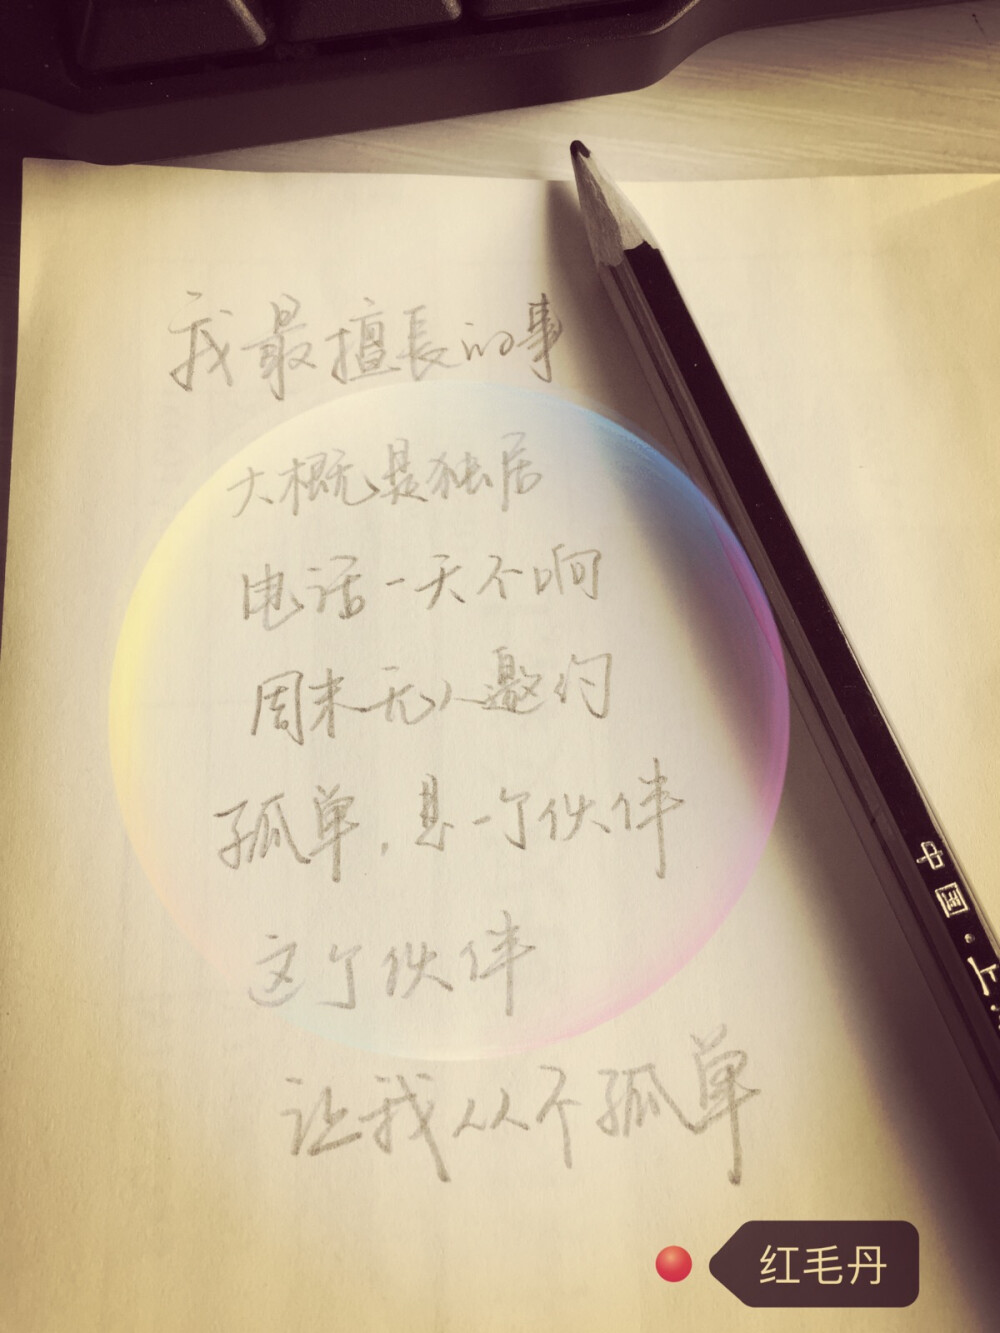 我最擅長的事
大概是独居
电话一天不响
周末无人邀约
孤单，是一个伙伴
这个伙伴
让我从不孤单
中国·上
红毛丹